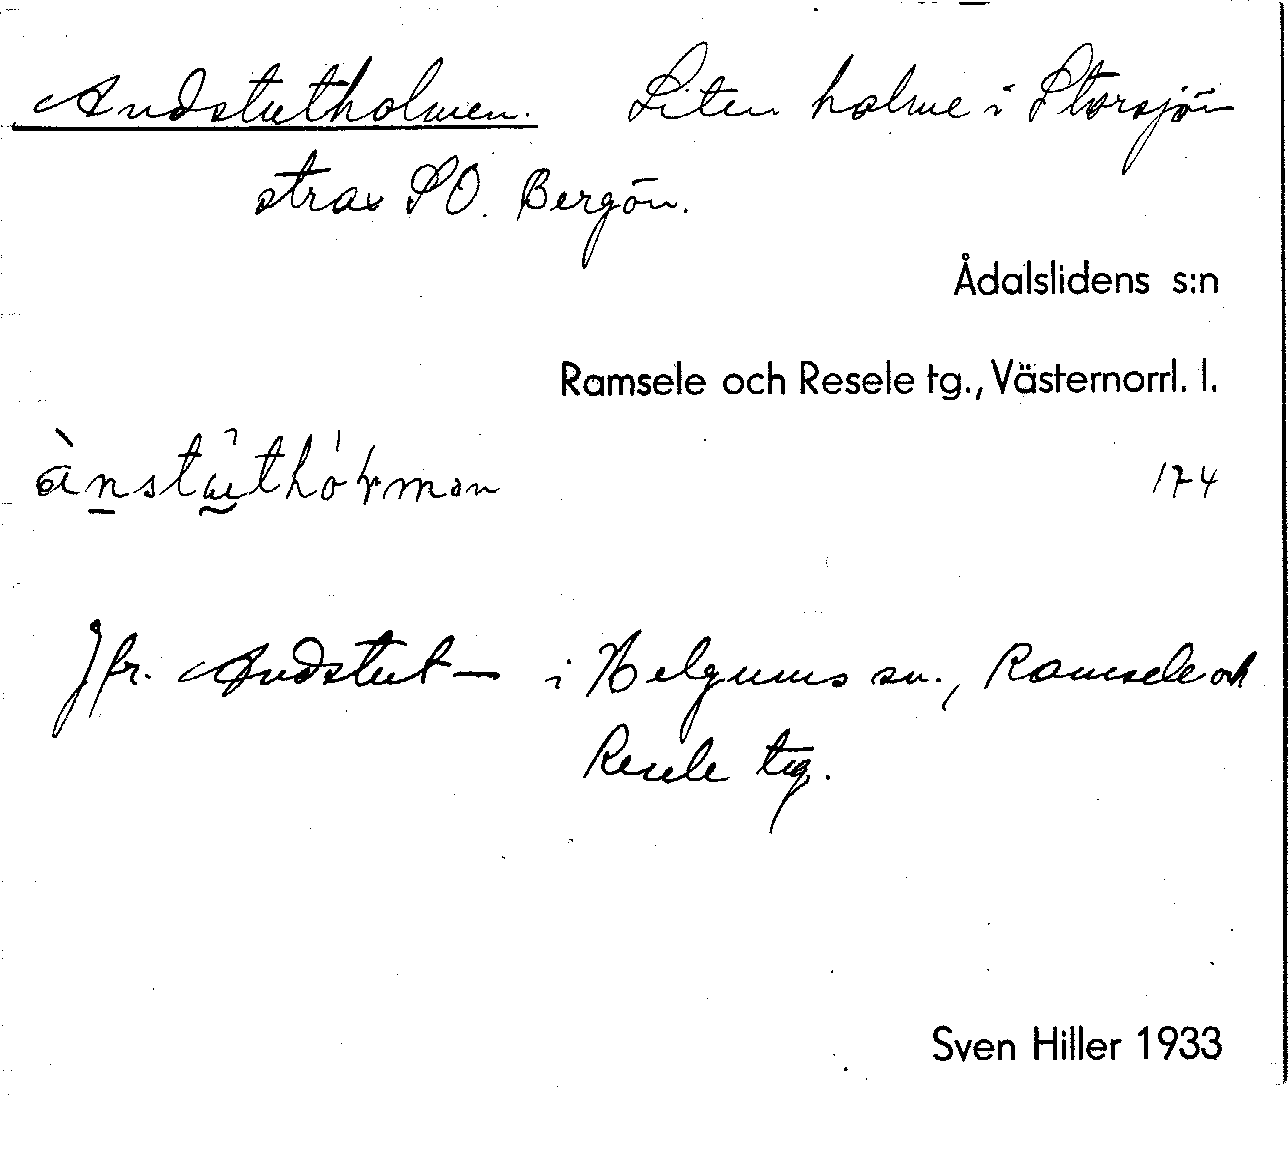 Andstutholmen. Liten holme i Storsjön
strax SO. Bergön.
Ådalslidens s:n
Ramsele och Resele tg., Västernorrl. l.
174
Jfr. Andstut- i Helgums sn., Ramsele och
Resele tg.
Sven Hiller 1933